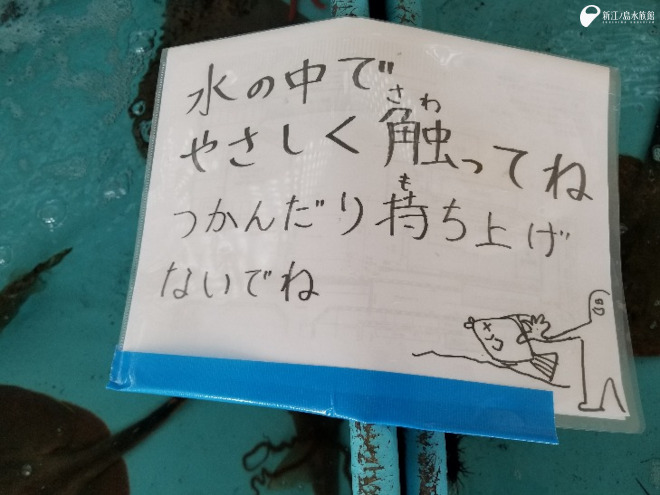 新江ノ島水族館
水の中で
さわ
やさしく触ってね
も
つかんだり持ち上げ
ないでね